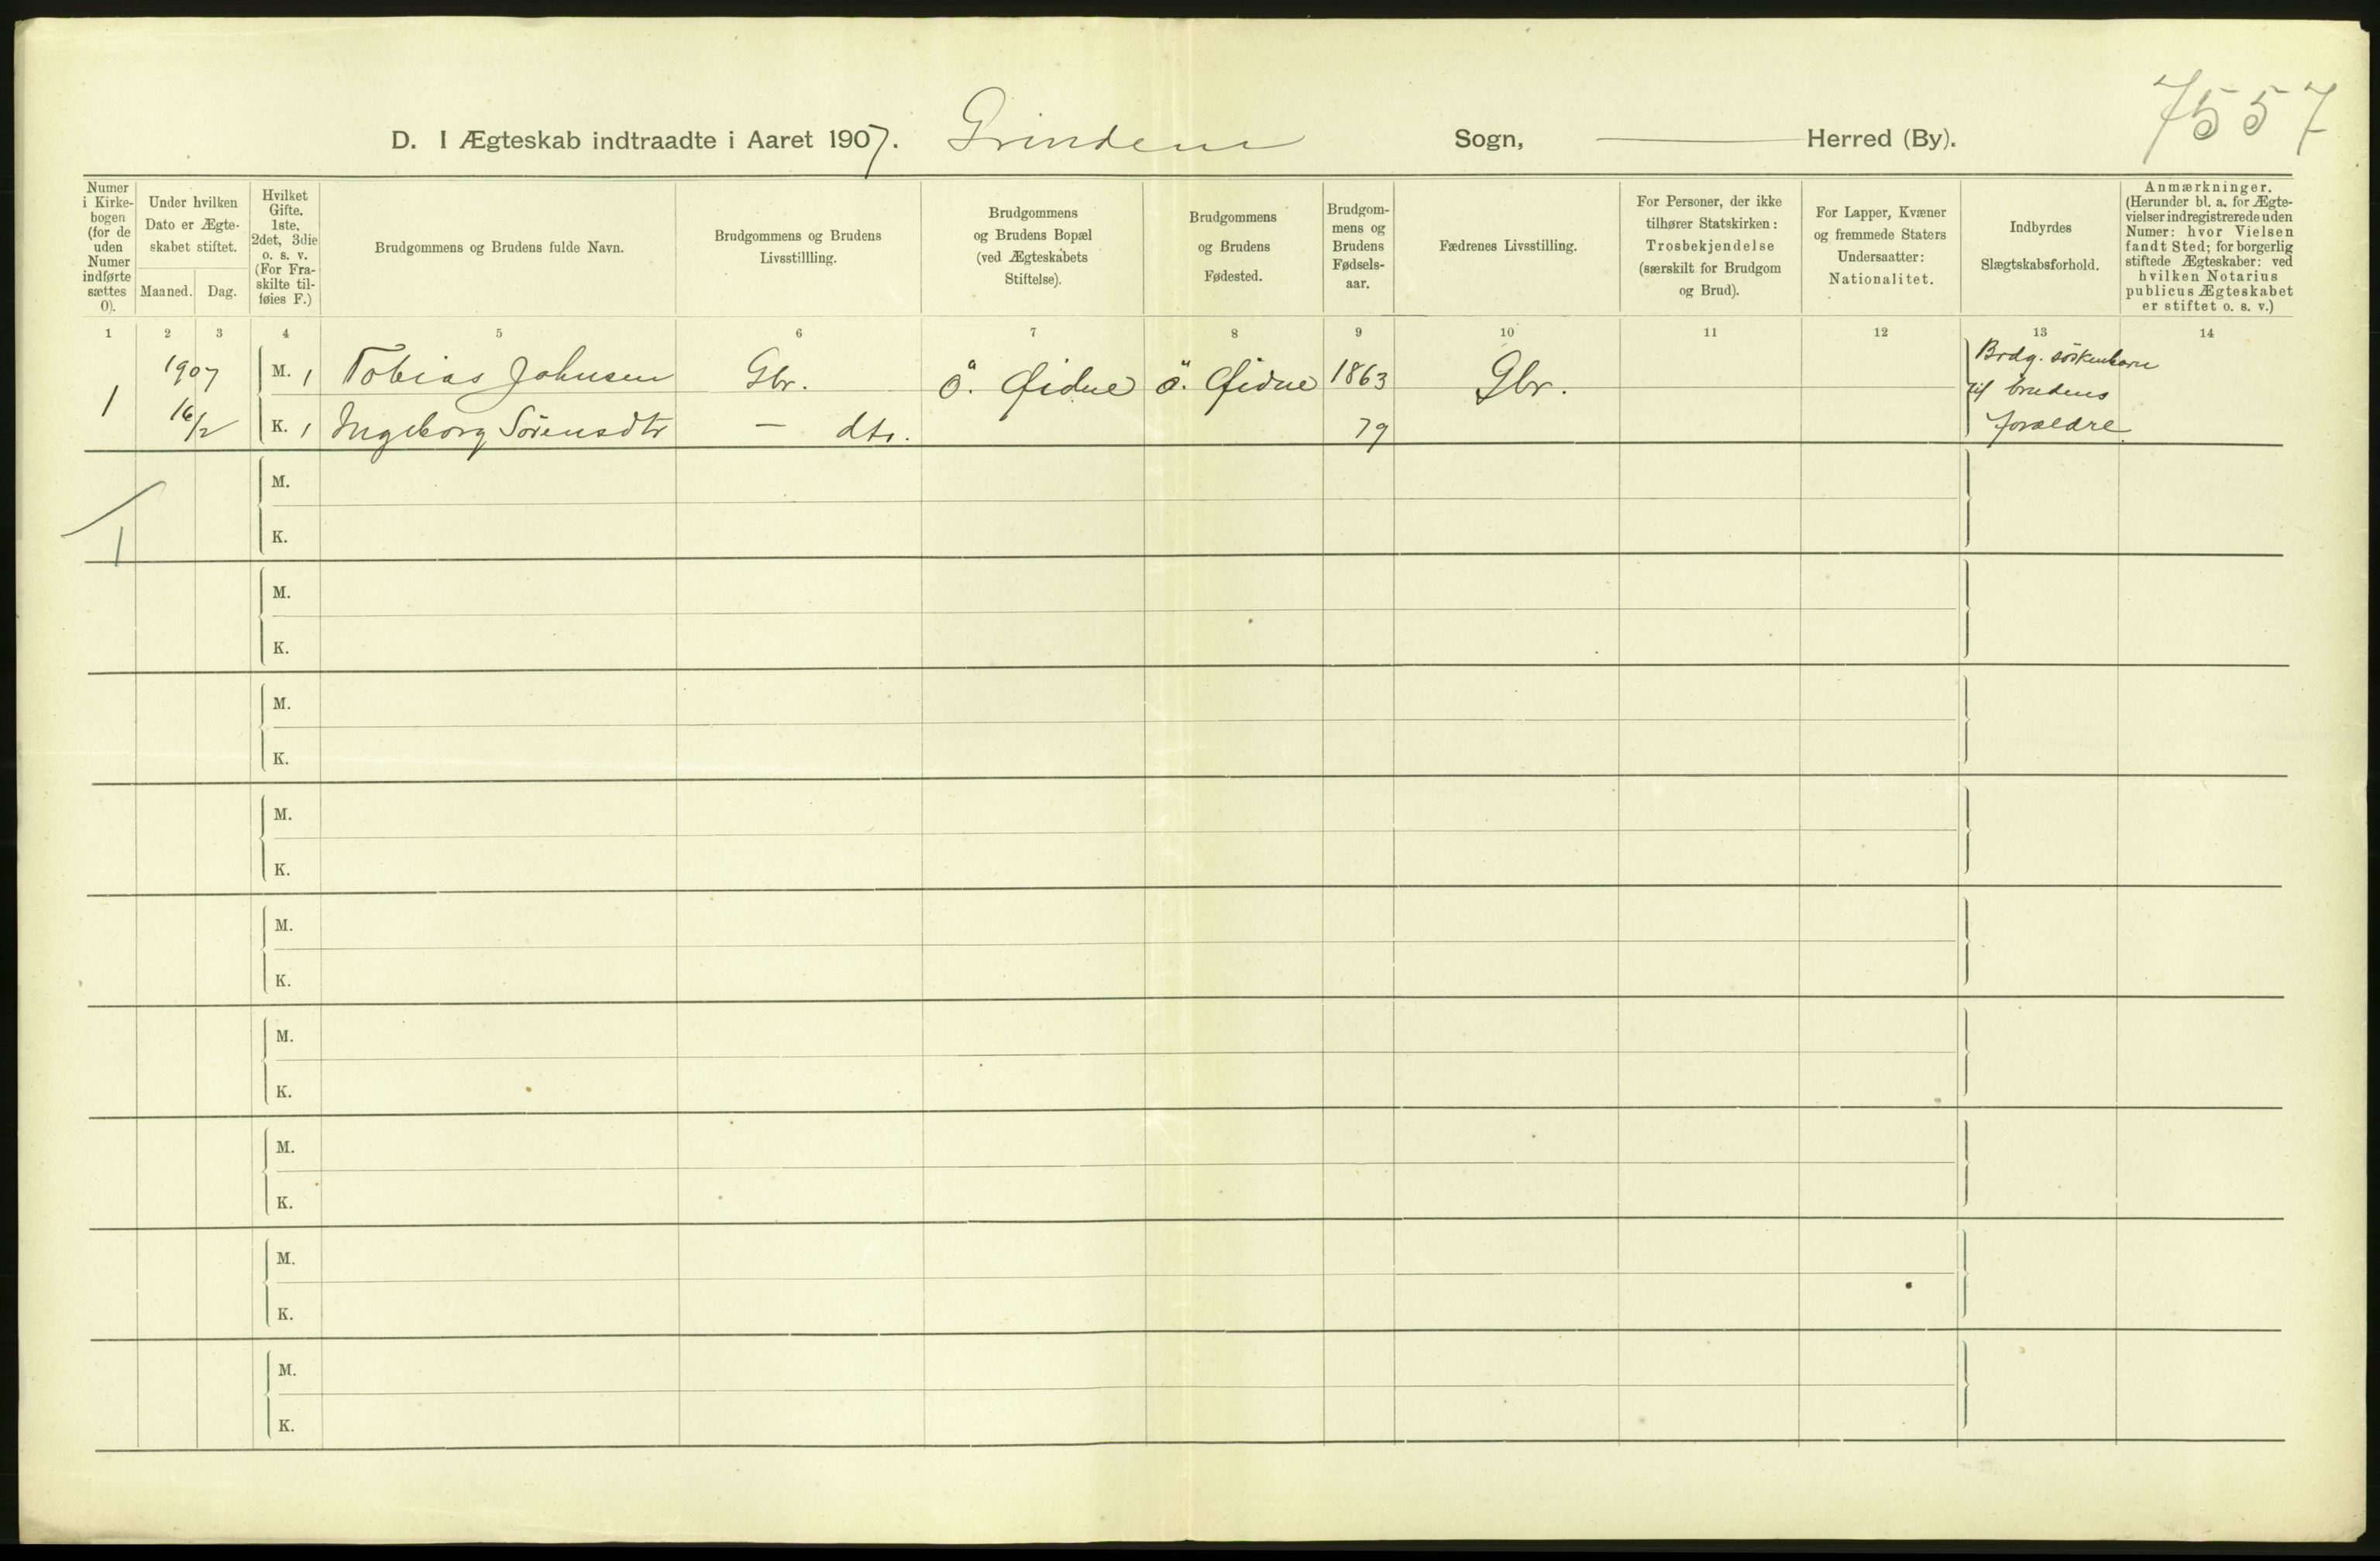 7557
D. I Ægteskab indtraadte i Aaret 1907. Grindem Sogn, ——— Herred (By).
Numer
i Kirke-
bogen
(for de
uden
Numer
indførte
sættes
0).
Under hvilken
Dato er Ægte-
skabet stiftet.
Maaned. Dag.
Hvilket
Gifte.
1ste,
2det, 3die
o. s. v.
(For Fra-
skilte til-
føies F.)
Brudgommens og Brudens fulde Navn.
Brudgommens og Brudens
Livsstillling.
Brudgommens
og Brudens Bopæl
(ved Ægteskabets
Stiftelse).
Brudgommens
og Brudens
Fødested.
Brudgom-
mens og
Brudens
Fødsels-
aar.
Fædrenes Livsstilling.
For Personer, der ikke
tilhører Statskirken:
Trosbekjendelse
(særskilt for Brudgom
og Brud).
For Lapper, Kvæner
og fremmede Staters
Undersaatter:
Nationalitet.
Indbyrdes
Slægtskabsforhold.
Anmærkninger.
(Herunder bl. a. for Ægte-
vielser indregistrerede uden
Numer: hvor Vielsen
fandt Sted; for borgerlig
stiftede Ægteskaber: ved
hvilken Notarius
publicus Ægteskabet
er stiftet o. s. v.)
1 2 3 4 5 6 7 8 9 10 11 12 13 14
1 1907 M. 1 Tobias Johnsen Gbr. Ö. Øidne ö. Øidne 1863 Gbr. Brdg. söskenbarn
til brudens
16/2 K. 1 Ingeborg Sörensdtr — dtr. 79 forældre.
M.
1
K.
M.
K.
M.
K.
M.
K.
M.
K.
M.
K.
M.
K.
M.
K.
M.
K.